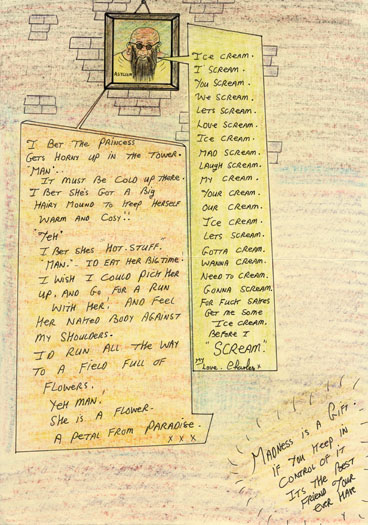 ASYLUM
ICE CREAM.
I SCREAM.
YOU SCREAM.
WE SCREAM.
LETS SCREAM.
LOVE SCREAM.
ICE CREAM.
MAD SCREAM.
LAUGH SCREAM.
MY CREAM.
YOUR CREAM.
OUR CREAM.
ICE CREAM.
LETS SCREAM.
GOTTA CREAM.
WANNA CREAM.
NEED TO CREAM.
GONNA SCREAM.
FOR FUCK SAKES
GET ME SOME
ICE CREAM.
BEFORE I
"SCREAM."
MY
LOVE. Charles x
I BET THE PRINCESS
GETS HORNY UP IN THE TOWER.
'MAN'..
IT MUST BE COLD UP THERE.
I BET SHE'S GOT A BIG
HAIRY MOUND TO KEEP HERSELF
WARM AND COSY!!
'YEH'
I BET SHES HOT. STUFF."
'MAN.' I'D EAT HER BIG TIME.
I WISH I COULD PICK HER
UP. AND GO FOR A RUN
WITH HER'. AND FEEL
HER NAKED BODY AGAINST
MY SHOULDERS.
I'D RUN ALL THE WAY
TO A FIELD FULL OF
FLOWERS.
YEH MAN.'
SHE IS A FLOWER.
A PETAL FROM PARADISE.
x x x
MADNESS IS A GIFT.
IF YOU KEEP IN
CONTROL OF IT
ITS THE BEST
FRIEND YOUR
EVER HAVE